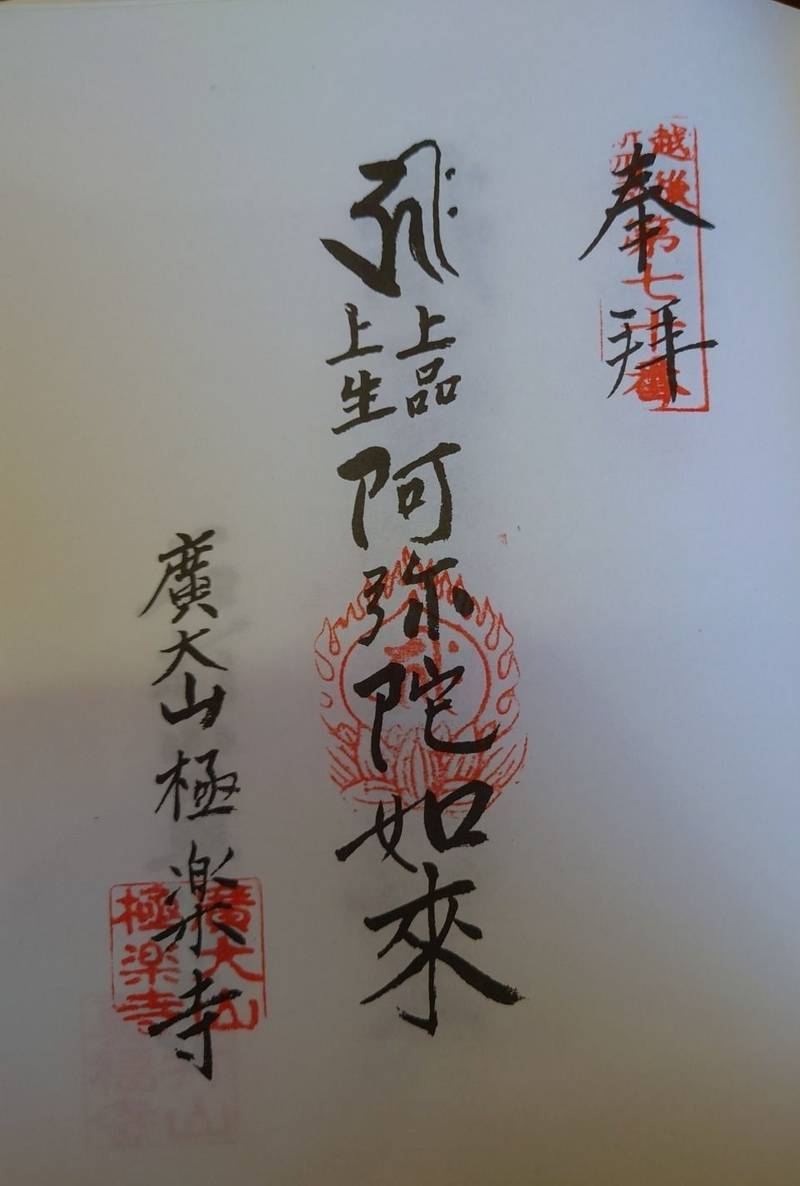 奉拝
越後
第七十番
上品
上生
阿弥陀如來
廣大山極楽寺
廣大山
極楽寺